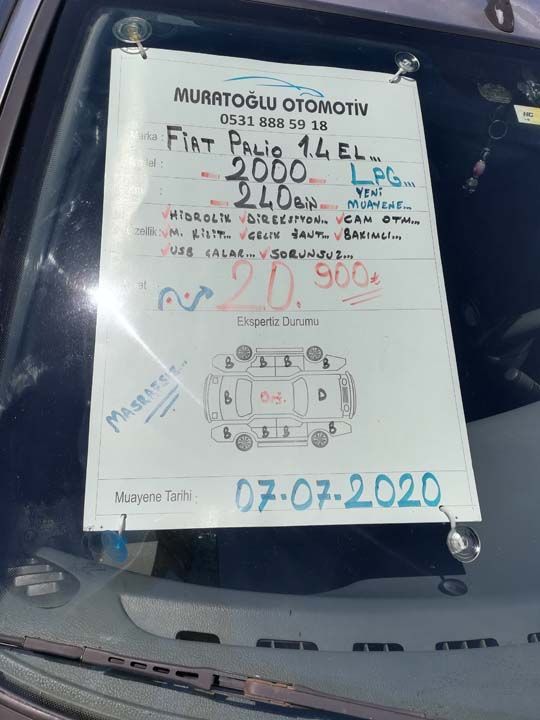 MURATOĞLU OTOMOTİV
0531 888 59 18
Marka : FİAT PALİO 1.4 EL...
2000 LPG...
240 BİN YENİ MUAYENE...
HİDROLİK DİREKSİYON... CAM OTM...
Özellik: M. KİLİT... ÇELİK JANT... BAKIMLI...
USB ÇALAR... SORUNSUZ...
20.900₺
Ekspertiz Durumu
B B B B
B Orj. D
B B B B B
MASRAFSIZ...
Muayene Tarihi : 07-07-2020